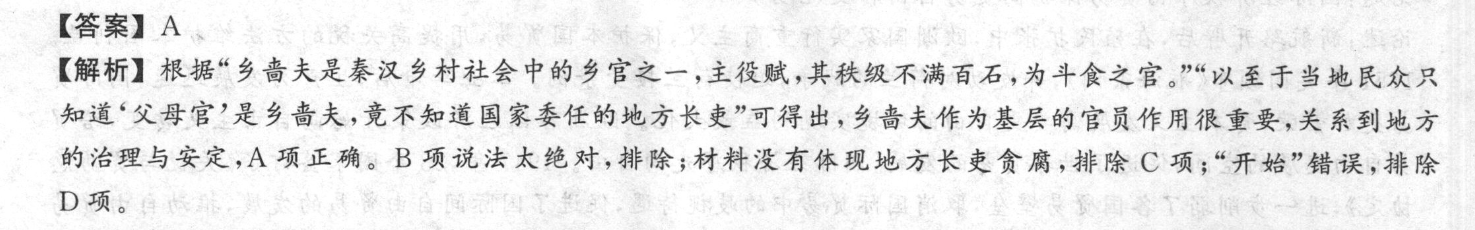 【答案】A
【解析】根据“乡啬夫是秦汉乡村社会中的乡官之一,主役赋,其秩级不满百石,为斗食之官。”“以至于当地民众只
知道‘父母官’是乡啬夫,竟不知道国家委任的地方长吏”可得出,乡啬夫作为基层的官员作用很重要,关系到地方
的治理与安定,A 项正确。B 项说法太绝对,排除;材料没有体现地方长吏贪腐,排除 C 项;“开始”错误,排除
D 项。